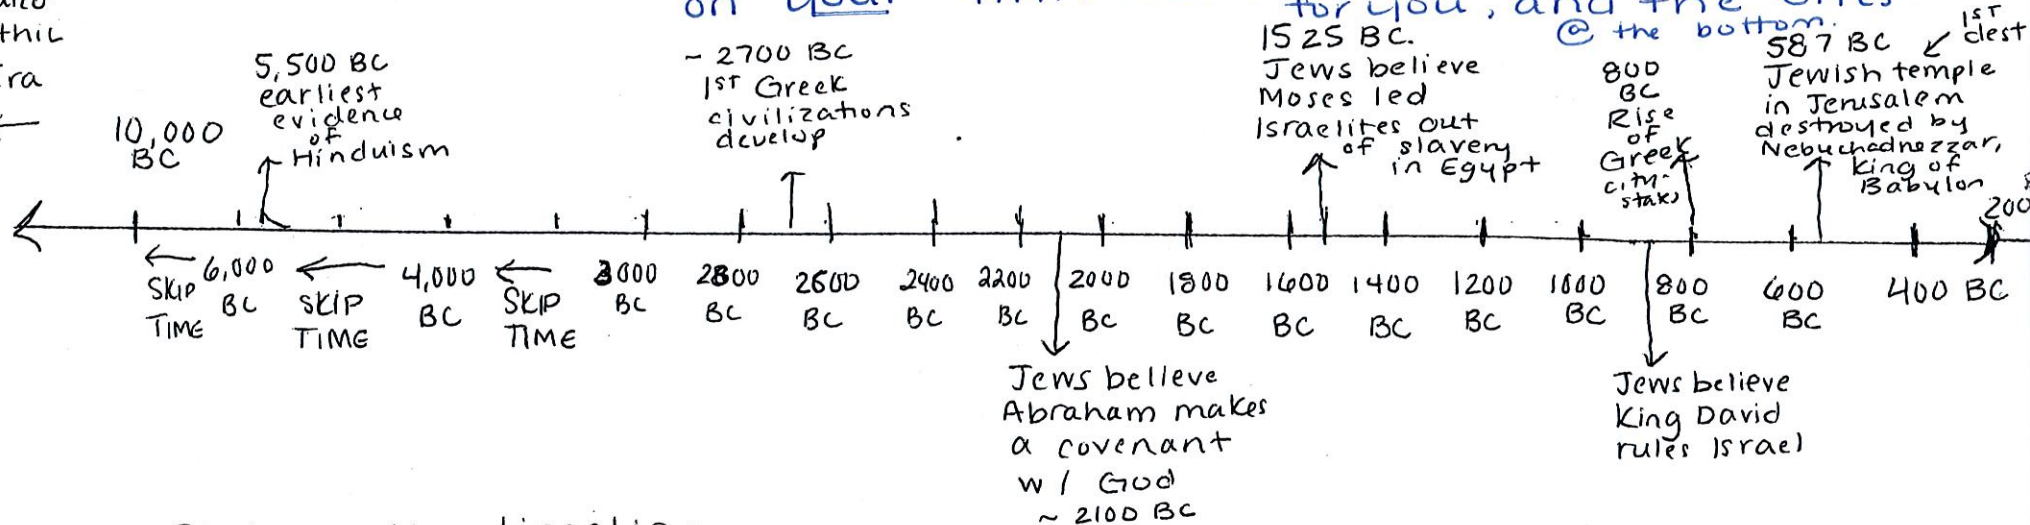 thic
ra
on your
for you, and the
@ the bottom.
1ST
dest
10,000
BC
5,500 BC
earliest
evidence
of
Hinduism
~ 2700 BC
1ST Greek
civilizations
develop
1525 BC.
Jews believe
Moses led
Israelites out
of slavery
in Egypt
800
BC
Rise
of
Greek
city-
587 BC
Jewish temple
in Jerusalem
destroyed by
Nebuchadnezzar,
king of
Babylon
200
SKIP
TIME
6,000
BC
SKIP
TIME
4,000
BC
SKIP
TIME
3000
BC
2800
BC
2600
BC
2400
BC
2200
BC
2000
BC
1800
BC
1600
BC
1400
BC
1200
BC
1000
BC
800
BC
600
BC
400 BC
Jews believe
Abraham makes
a covenant
w/ God
~ 2100 BC
Jews believe
King David
rules Israel